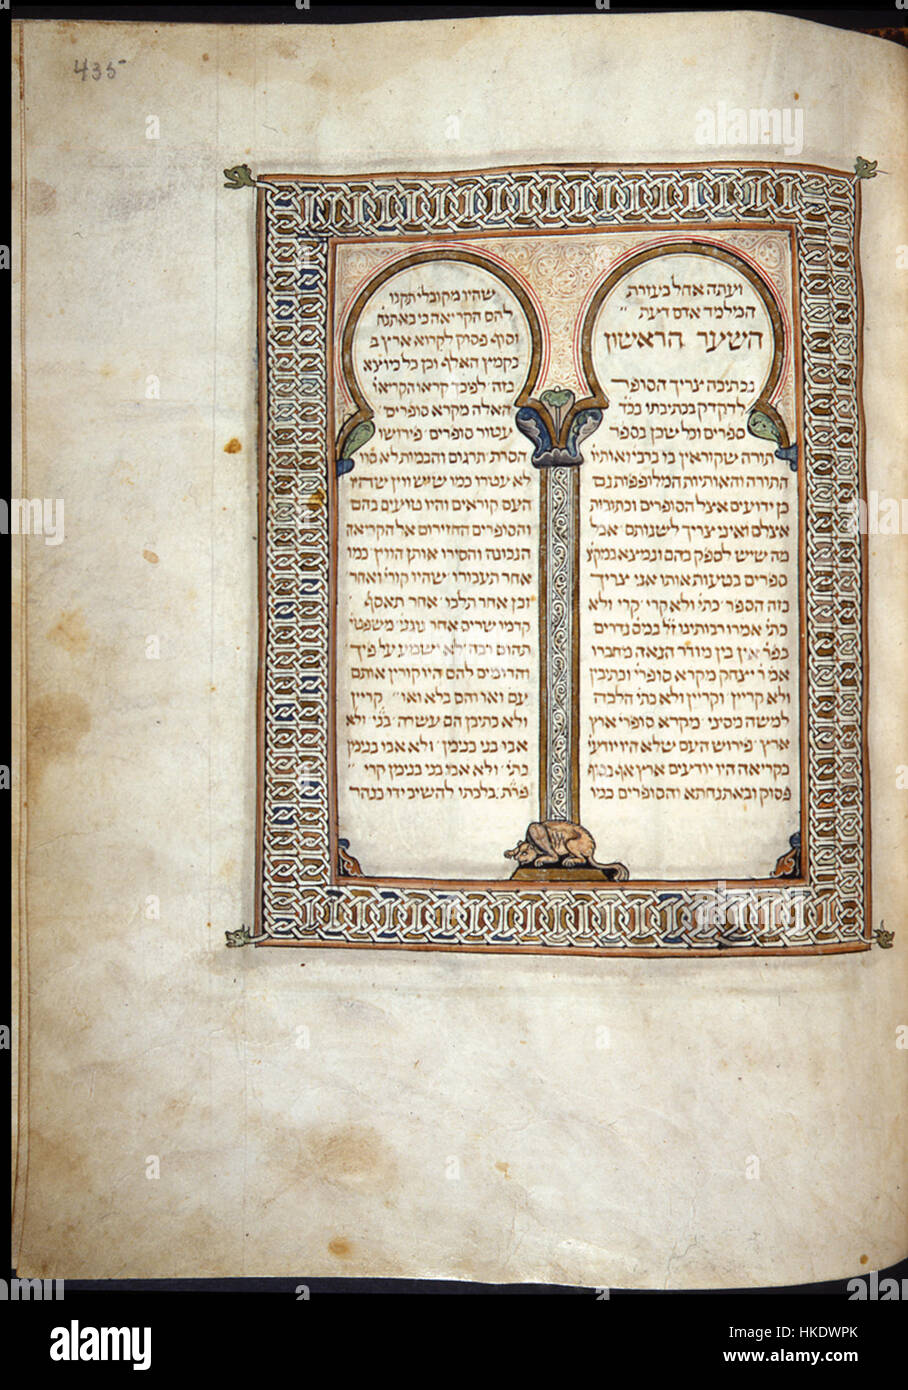 435
ועתה אחל בעזרת
המלמד אדם דעת
השער הראשון
בכתיבה צריך הסופר
לדקדק בכתיבתו בכל
ספרים וכל שכן בספר
תורה שקוראין בו ברבי ואותיו
התורה והאותיות המלופפות גם
כן ידועים אצל הסופרים וכתובות
אצלם ואיני צריך לשנותם אבל
מה שיש לספק בהם ונמצא במקצ
ספרים בטעות אותו אני צריך
בזה הספר כתי ולא קרי קרי ולא
כתי אמרו רבותינו ז״ל במס נדרים
בפר אין בין מודר הנאה מחברו
אמ ר יצחק מקרא סופרי וכתיבן
ולא קריין וקריין ולא כתי הלכה
למשה מסיני מקרא סופרי ארץ
ארץ פירוש העם שלא היו יודעי
בקריאה היו יודעים ארץ אף בסוף
פסוק ובאתנחתא והסופרים בניו
שהיו מקובלי תקנו
להם הקריאה כי באתנח
וסוף פסוק לקרוא ארץ ב
בקמץ האלף וכן כל כיוצא
בזה לפיכך קראו הקריאו
האלה מקרא סופרים
עטור סופרים פירושו
הסרת תרגום והבמות לא
לא עטרו כמו שיש ווין שהיו
העם קוראים והיו טועים בהם
והסופרים החזירום אל הקריאה
הנכונה והסירו אותן הווין כמו
אחר תעבורו שהיו קורי ואחר
וכן אחר תלכו אחר תאסף
קדמו שרים אחר נוגני משפטי
תהום רבה לא ישמע על פיך
והדומים להם היו קורין אותם
עם ואו והם בלא ואו קריין
ולא כתיבן הם עשרה בני ולא
אבו בני בנימן ולא אבו בנימן
כתי ולא אבו בני בנימן קרי
פרת בלכתו להשיב ידו בנהר
alamy stock photo
Image ID: HKDWPK
www.alamy.com